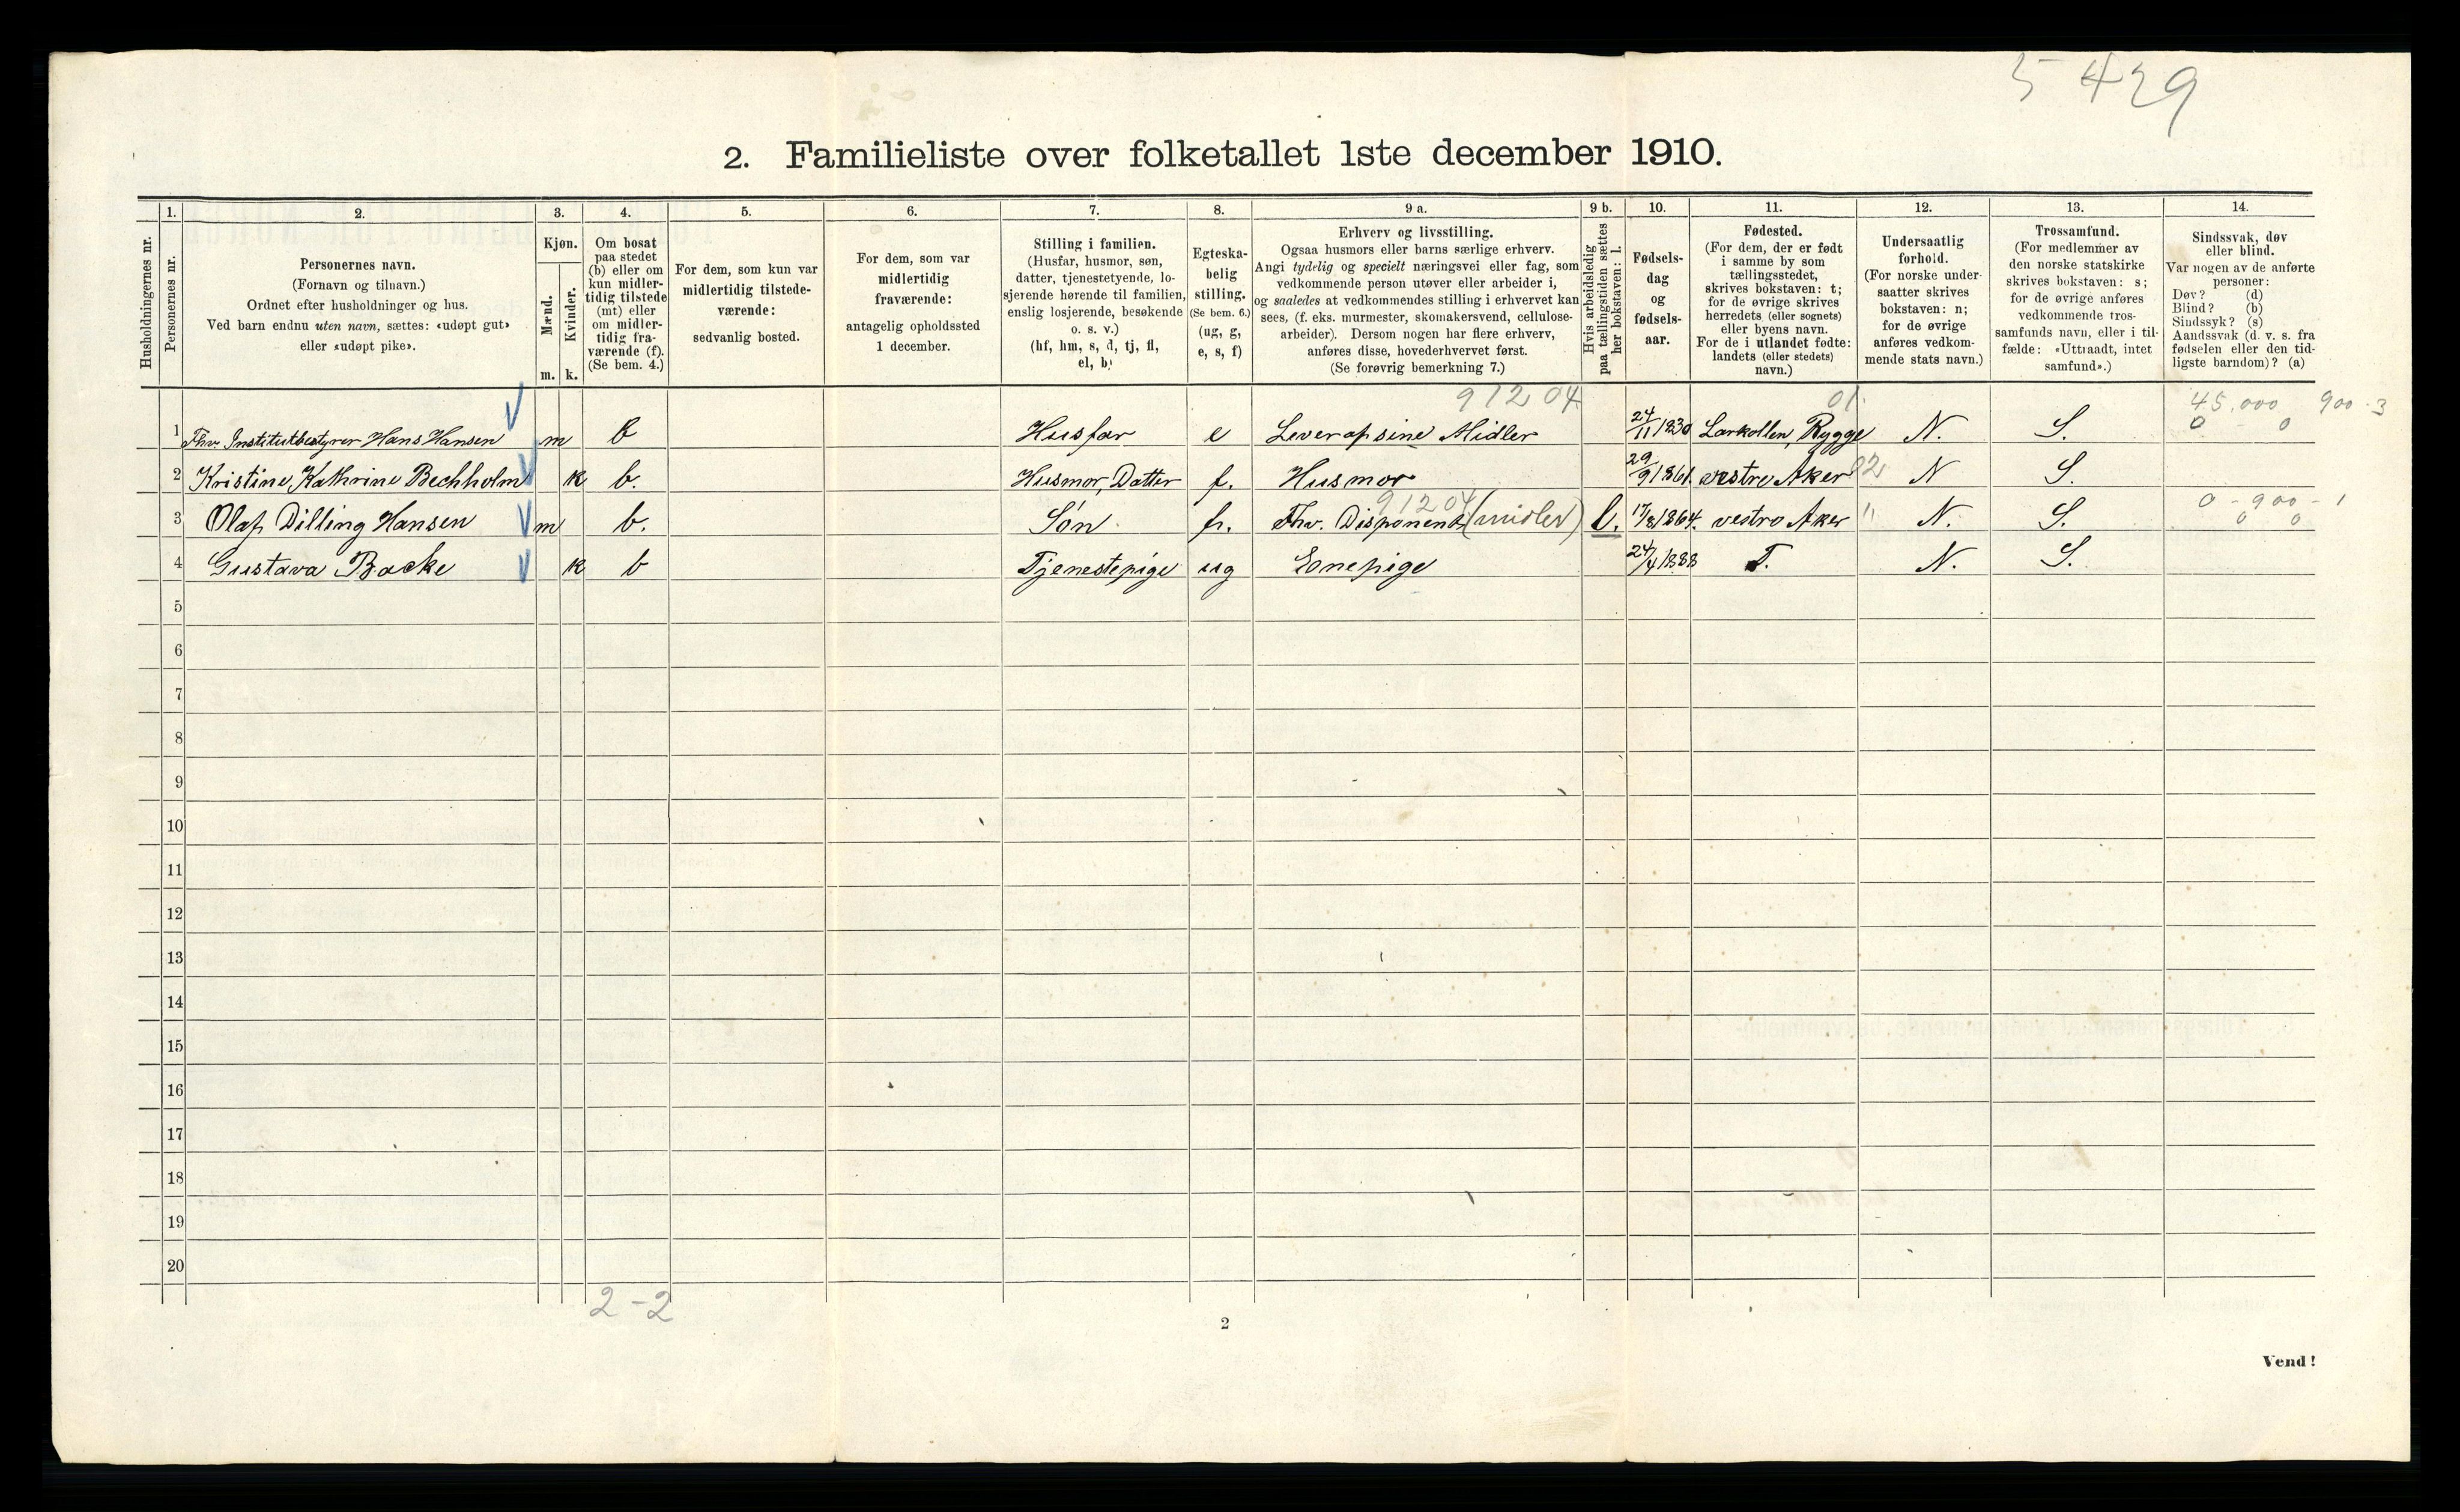 5429
2. Familieliste over folketallet 1ste december 1910.
1. 2. 3. 4. 5. 6. 7. 8. 9 a. 9 b. 10. 11. 12. 13. 14.
Husholdningernes nr.
Personernes nr.
Personernes navn.
(Fornavn og tilnavn.)
Ordnet efter husholdninger og hus.
Ved barn endnu uten navn, sættes: «udøpt gut»
eller «udøpt pike».
Kjøn.
Mænd.
Kvinder.
m. k.
Om bosat
paa stedet
(b) eller om
kun midler-
tidig tilstede
(mt) eller
om midler-
tidig fra-
værende (f).
(Se bem. 4.)
For dem, som kun var
midlertidig tilstede-
værende:
sedvanlig bosted.
For dem, som var
midlertidig
fraværende:
antagelig opholdssted
1 december.
Stilling i familien.
(Husfar, husmor, søn,
datter, tjenestetyende, lo-
sjerende hørende til familien,
enslig losjerende, besøkende
o. s. v.)
(hf, hm, s, d, tj, fl,
el, b)
Egteska-
belig
stilling.
(Se bem. 6.)
(ug, g,
e, s, f)
Erhverv og livsstilling.
Ogsaa husmors eller barns særlige erhverv.
Angi tydelig og specielt næringsvei eller fag, som
vedkommende person utøver eller arbeider i,
og saaledes at vedkommendes stilling i erhvervet kan
sees, (f. eks. murmester, skomakersvend, cellulose-
arbeider). Dersom nogen har flere erhverv,
anføres disse, hovederhvervet først.
(Se forøvrig bemerkning 7.)
Hvis arbeidsledig
paa tællingstiden sættes
her bokstaven: l.
Fødsels-
dag
og
fødsels-
aar.
Fødested.
(For dem, der er født
i samme by som
tællingsstedet,
skrives bokstaven: t;
for de øvrige skrives
herredets (eller sognets)
eller byens navn.
For de i utlandet fødte:
landets (eller stedets)
navn.)
Undersaatlig
forhold.
(For norske under-
saatter skrives
bokstaven: n;
for de øvrige
anføres vedkom-
mende stats navn.)
Trossamfund.
(For medlemmer av
den norske statskirke
skrives bokstaven: s;
for de øvrige anføres
vedkommende tros-
samfunds navn, eller i til-
fælde: «Uttraadt, intet
samfund».)
Sindssvak, døv
eller blind.
Var nogen av de anførte
personer:
Døv? (d)
Blind? (b)
Sindssyk? (s)
Aandssvak (d. v. s. fra
fødselen eller den tid-
ligste barndom)? (a)
91204 01. 45,000 900.3
1 Fhv. Institutbestyrer Hans Hansen m b Husfar e Lever af sine Midler 24/11 1830 Larkollen, Rygge N. S. 0 0
2 Kristine Kathrine Bechholm k b. Husmor, Datter f. Husmor 29/9 1861. vestre Aker 02 N S.
91204 0-900-1
3 Olaf Dilling Hansen m b. Søn f. Fhv. Disponent (midler) l. 17/8 1864. vestre Aker " N. S. 0 0
4 Gustava Backe k b Tjenestepige ug Enepige 24/4 1888 T. N. S.
5
6
7
8
9
10
11
12
13
14
15
16
17
18
19
20
2-2
2
Vend!